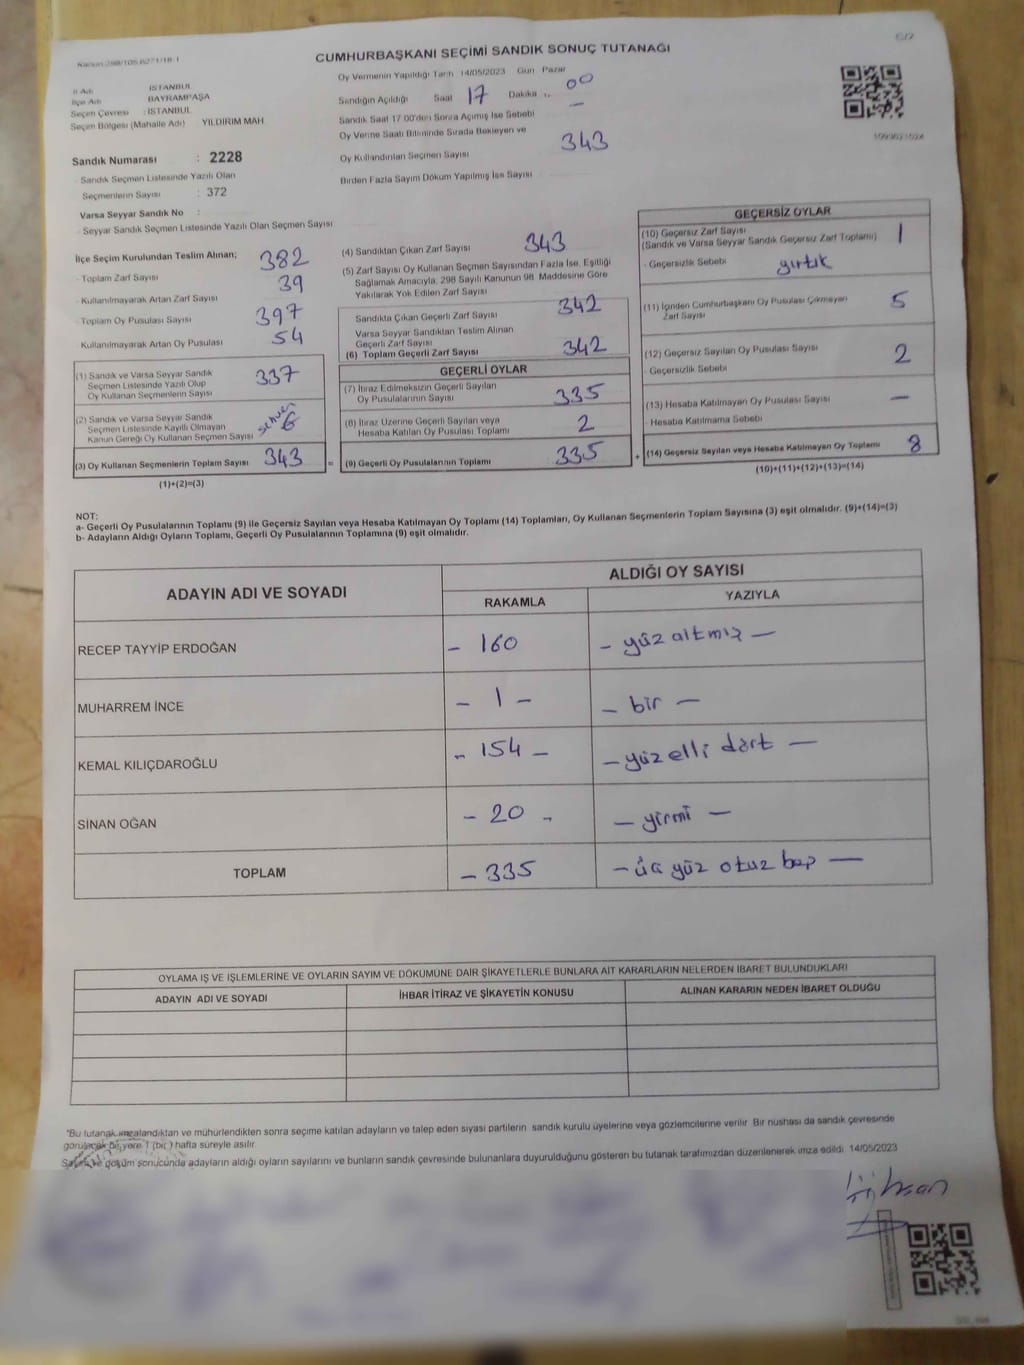 CUMHURBAŞKANI SEÇİMİ SANDIK SONUÇ TUTANAĞI
İl Adı : İSTANBUL
İlçe Adı : BAYRAMPAŞA
Seçim Çevresi : İSTANBUL
Seçim Bölgesi (Mahalle Adı) YILDIRIM MAH
Sandık Numarası : 2228
Sandık Seçmen Listesinde Yazılı Olan
Seçmenlerin Sayısı : 372
Varsa Seyyar Sandık No :
- Seyyar Sandık Seçmen Listesinde Yazılı Olan Seçmen Sayısı
Oy Vermenin Yapıldığı Tarih 14/05/2023 Gün Pazar
Sandığın Açıldığı Saat 17 Dakika 00
Sandık Saat 17 00'den Sonra Açımış İse Sebebi —
Oy Verme Saati Bitiminde Sırada Bekleyen ve
Oy Kullandırılan Seçmen Sayısı 343
Birden Fazla Sayım Döküm Yapılmış İse Sayısı
İlçe Seçim Kurulundan Teslim Alınan;
- Toplam Zarf Sayısı 382
- Kullanılmayarak Artan Zarf Sayısı 39
- Toplam Oy Pusulası Sayısı 397
Kullanılmayarak Artan Oy Pusulası 54
(1) Sandık ve Varsa Seyyar Sandık
Seçmen Listesinde Yazılı Olup
Oy Kullanan Seçmenlerin Sayısı 337
(2) Sandık ve Varsa Seyyar Sandık
Seçmen Listesinde Kayıtlı Olmayan
Kanun Gereği Oy Kullanan Seçmen Sayısı 6
(3) Oy Kullanan Seçmenlerin Toplam Sayısı 343 =
(1)+(2)=(3)
(4) Sandıktan Çıkan Zarf Sayısı 343
(5) Zarf Sayısı Oy Kullanan Seçmen Sayısından Fazla İse, Eşitliği
Sağlamak Amacıyla, 298 Sayılı Kanunun 98. Maddesine Göre
Yakılarak Yok Edilen Zarf Sayısı
Sandıkta Çıkan Geçerli Zarf Sayısı 342
Varsa Seyyar Sandıktan Teslim Alınan
Geçerli Zarf Sayısı
(6) Toplam Geçerli Zarf Sayısı 342
GEÇERLİ OYLAR
(7) İtiraz Edilmeksizin Geçerli Sayılan
Oy Pusulalarının Sayısı 335
(8) İtiraz Üzerine Geçerli Sayılan veya
Hesaba Katılan Oy Pusulası Toplamı 2
(9) Geçerli Oy Pusulalarının Toplamı 335 +
GEÇERSİZ OYLAR
(10) Geçersiz Zarf Sayısı 1
(Sandık ve Varsa Seyyar Sandık Geçersiz Zarf Toplamı)
- Geçersizlik Sebebi yırtık
(11) İçinden Cumhurbaşkanı Oy Pusulası Çıkmayan
Zarf Sayısı 5
(12) Geçersiz Sayılan Oy Pusulası Sayısı 2
- Geçersizlik Sebebi
(13) Hesaba Katılmayan Oy Pusulası Sayısı —
- Hesaba Katılmama Sebebi
(14) Geçersiz Sayılan veya Hesaba Katılmayan Oy Toplamı 8
(10)+(11)+(12)+(13)=(14)
NOT:
a- Geçerli Oy Pusulalarının Toplamı (9) ile Geçersiz Sayılan veya Hesaba Katılmayan Oy Toplamı (14) Toplamları, Oy Kullanan Seçmenlerin Toplam Sayısına (3) eşit olmalıdır. (9)+(14)=(3)
b- Adayların Aldığı Oyların Toplamı, Geçerli Oy Pusulalarının Toplamına (9) eşit olmalıdır.
ADAYIN ADI VE SOYADI
ALDIĞI OY SAYISI
RAKAMLA YAZIYLA
RECEP TAYYİP ERDOĞAN - 160 - yüz altmış —
MUHARREM İNCE - 1 - - bir —
KEMAL KILIÇDAROĞLU - 154 - - yüz elli dört —
SİNAN OĞAN - 20 - - yirmi —
TOPLAM - 335 - üç yüz otuz beş —
OYLAMA İŞ VE İŞLEMLERİNE VE OYLARIN SAYIM VE DÖKÜMÜNE DAİR ŞİKAYETLERLE BUNLARA AİT KARARLARIN NELERDEN İBARET BULUNDUKLARI
ADAYIN ADI VE SOYADI İHBAR İTİRAZ VE ŞİKAYETİN KONUSU ALINAN KARARIN NEDEN İBARET OLDUĞU
"Bu tutanak imzalandıktan ve mühürlendikten sonra seçime katılan adayların ve talep eden siyasi partilerin sandık kurulu üyelerine veya gözlemcilerine verilir. Bir nushası da sandık çevresinde
görülecek bir yere 1 (bir) hafta süreyle asılır.
Sayım ve döküm sonucunda adayların aldığı oyların sayılarını ve bunların sandık çevresinde bulunanlara duyurulduğunu gösteren bu tutanak tarafımızdan düzenlenerek imza edildi. 14/05/2023